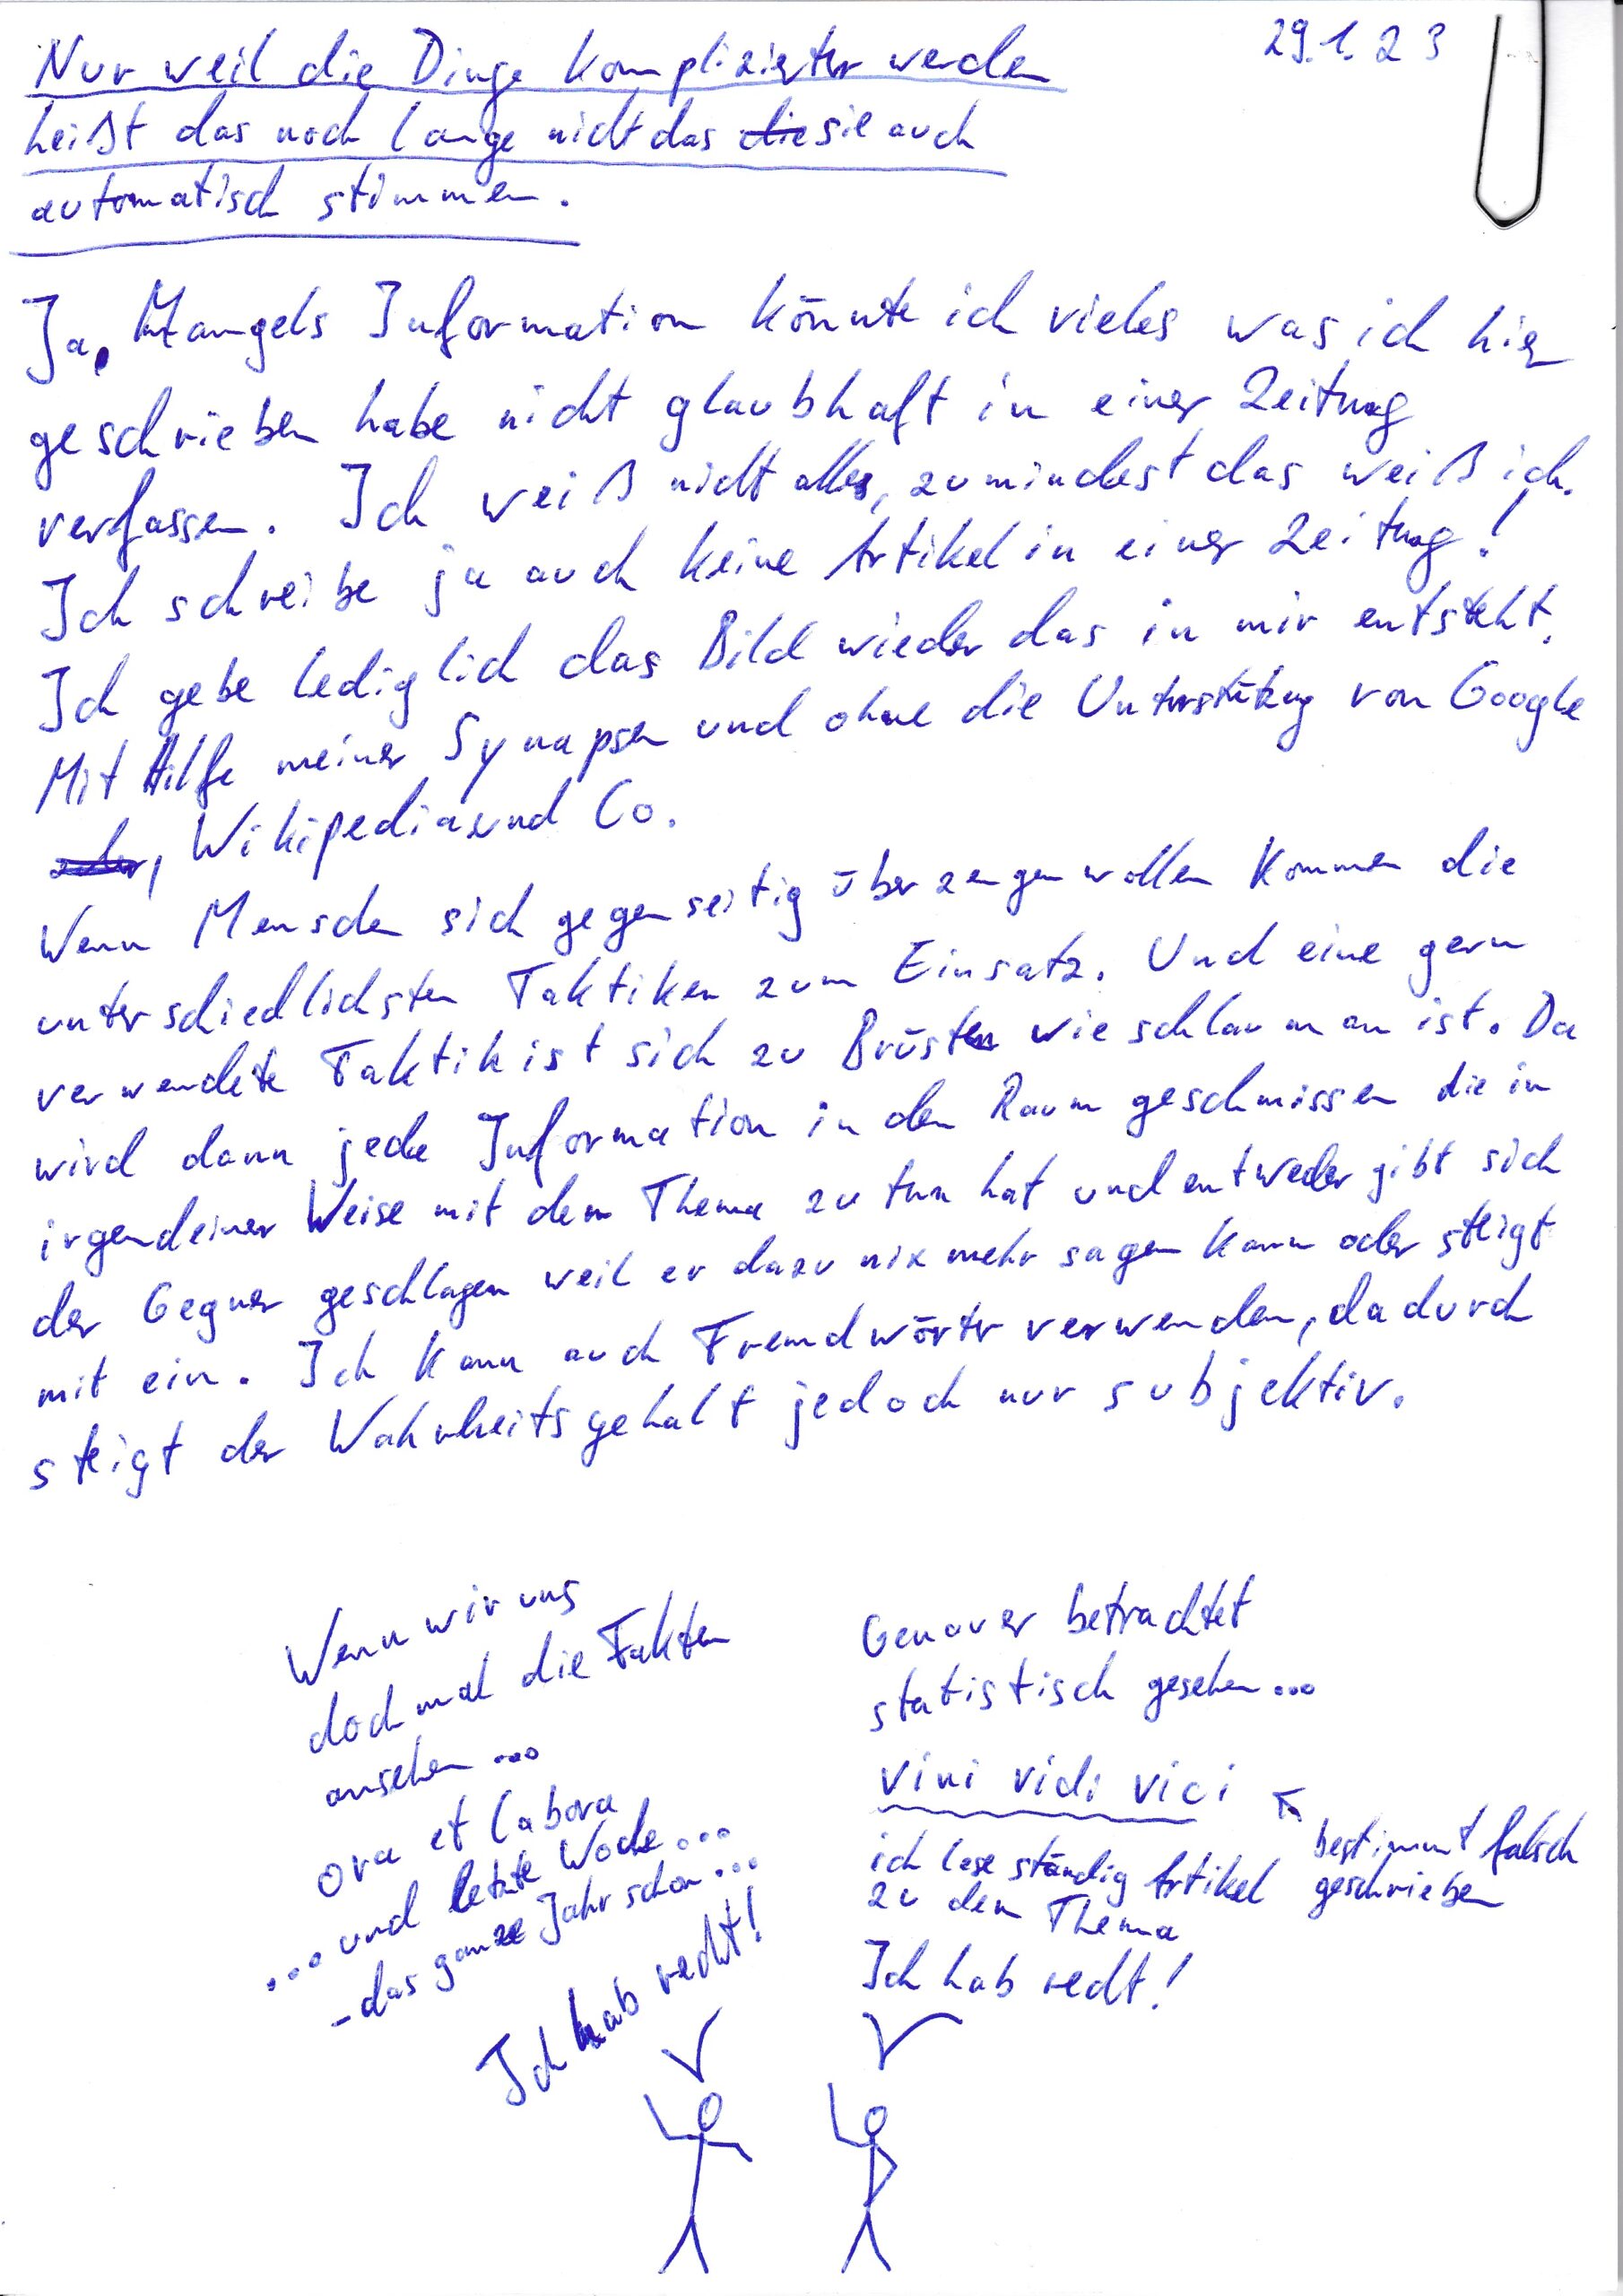 29.1.23
Nur weil die Dinge komplizierter werden
heißt das noch lange nicht das die sie auch
automatisch stimmen.
Ja, Mangels Information könnte ich vieles was ich hier
geschrieben habe nicht glaubhaft in einer Zeitung
verfassen. Ich weiß nicht alles, zumindest das weiß ich.
Ich schreibe ja auch keine Artikel in einer Zeitung!
Ich gebe lediglich das Bild wieder das in mir entsteht.
Mit Hilfe meiner Synapsen und ohne die Unterstützung von Google
, Wikipedia und Co.
Wenn Menschen sich gegenseitig überzeugen wollen kommen die
unterschiedlichsten Taktiken zum Einsatz. Und eine gern
verwendete Taktik ist sich zu Brüsten wie schlau man ist. Da
wird dann jede Information in den Raum geschmissen die in
irgendeiner Weise mit dem Thema zu tun hat und entweder gibt sich
der Gegner geschlagen weil er dazu nix mehr sagen kann oder steigt
mit ein. Ich kann auch Fremdwörter verwenden, dadurch
steigt der Wahrheitsgehalt jedoch nur subjektiv.
Wenn wir uns
doch mal die Fakten
ansehen ...
ora et labora
... und letzte Woche ...
- das ganze Jahr schon ...
Ich hab recht!
Genauer betrachtet
statistisch gesehen ...
vini vidi vici
bestimmt falsch
geschrieben
ich lese ständig Artikel
zu dem Thema
Ich hab recht!